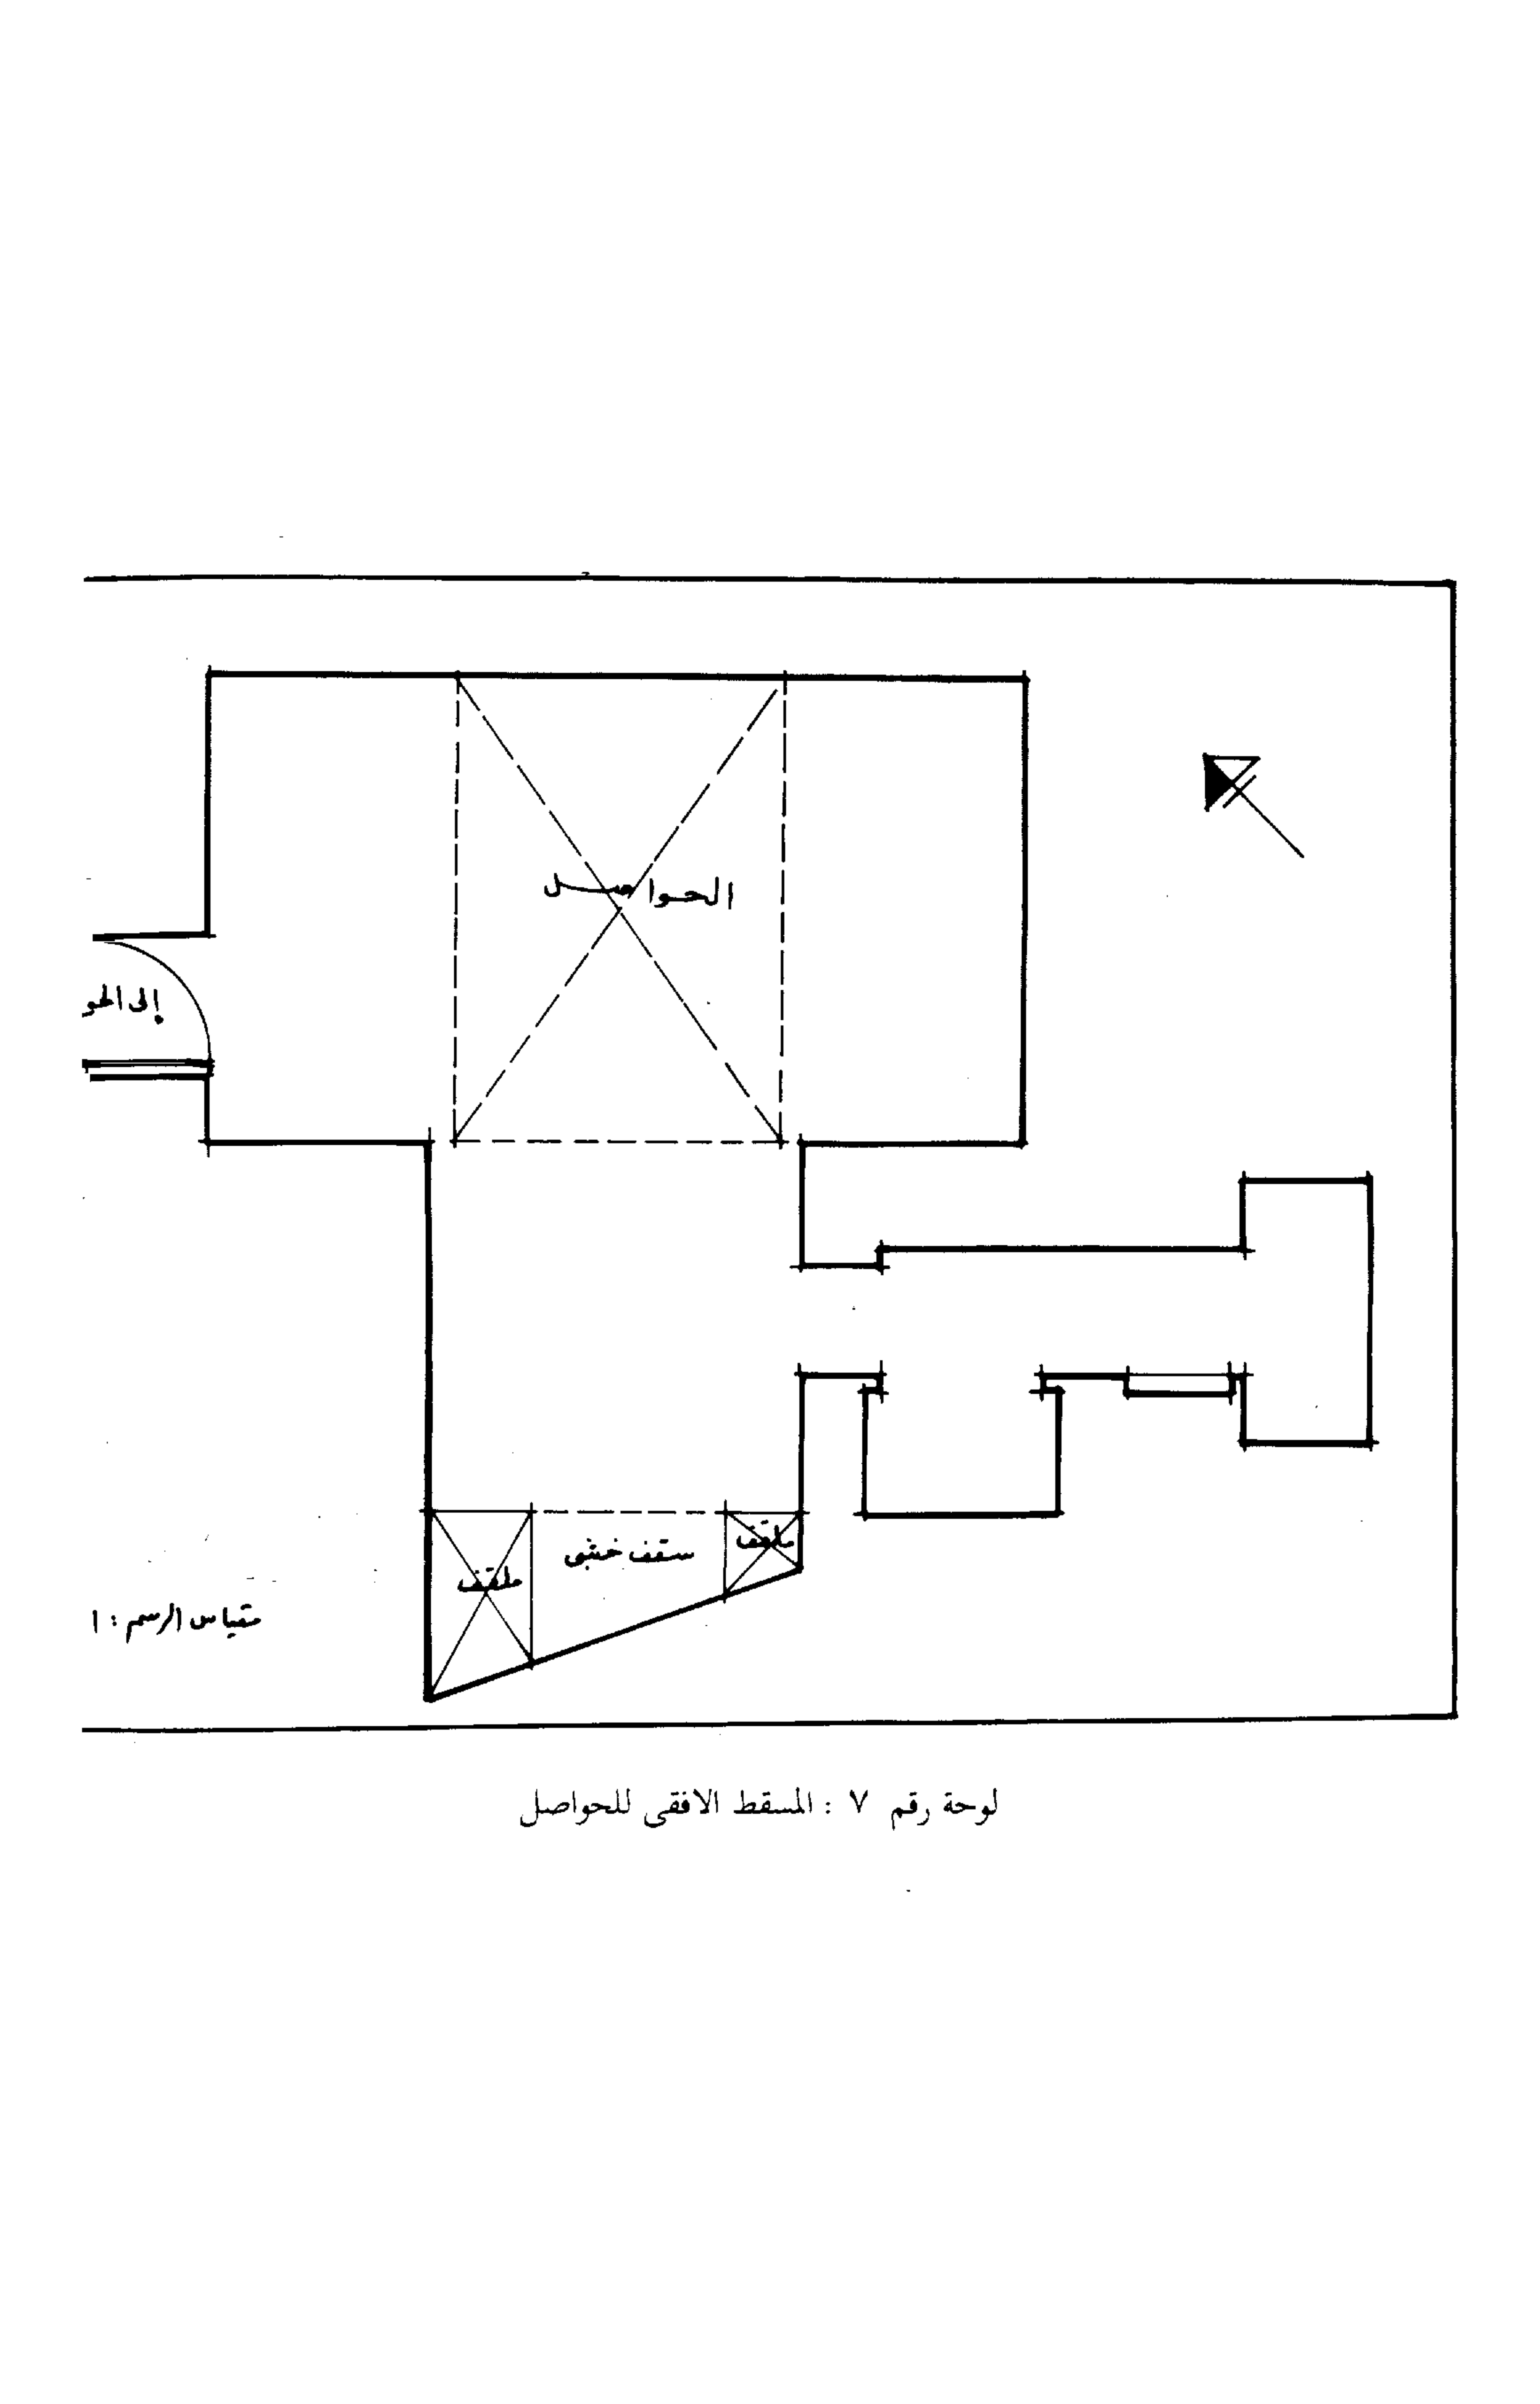 الحواصل
إلى الحو
ملقف
سقف خشبى
ملقف
مقياس الرسم : ١
لوحة رقم ٧ : المسقط الافقى للحواصل